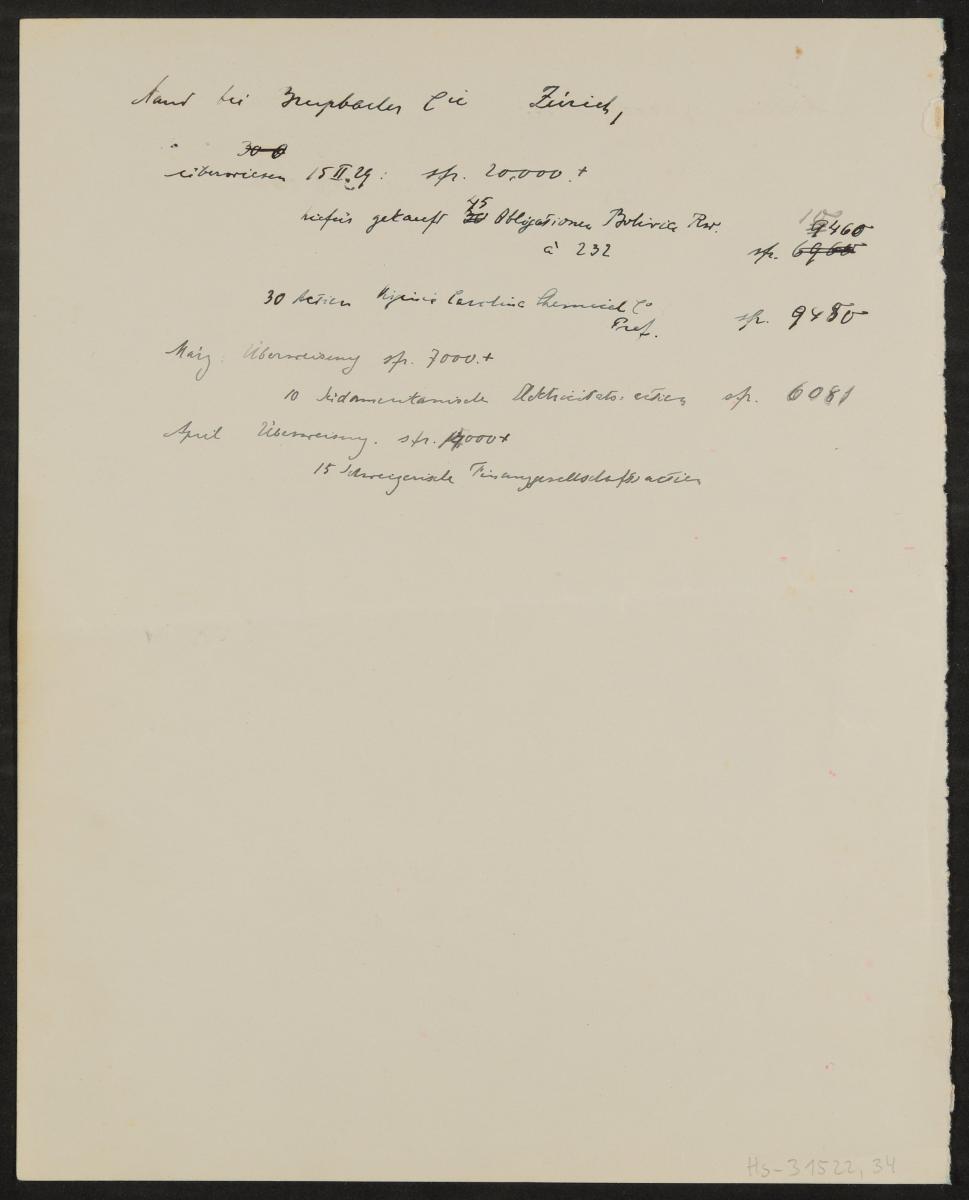 Stand bei Brupbacher Cie Zürich,
300
überwiesen 15 II. 29: sfr. 20,000.+
45
hiefür gekauft 30 Obligationen Bolivia Rw. 10460
à 232 sfr. 6960
30 Actien Virginia Carolina Chemical Co
Pref. sfr. 9480
März: Überweisung sfr. 7000.+
10 Südamerikanische Elektricitäts-actien sfr. 6081
April Überweisung. sfr. 000+
15 Schweizerische Finanzgesellschaftsactien
Hs-31522, 34